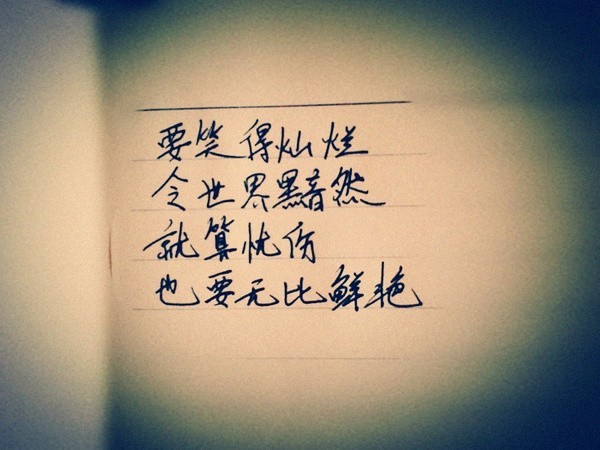 要笑得灿烂
令世界黯然
就算忧伤
也要无比鲜艳